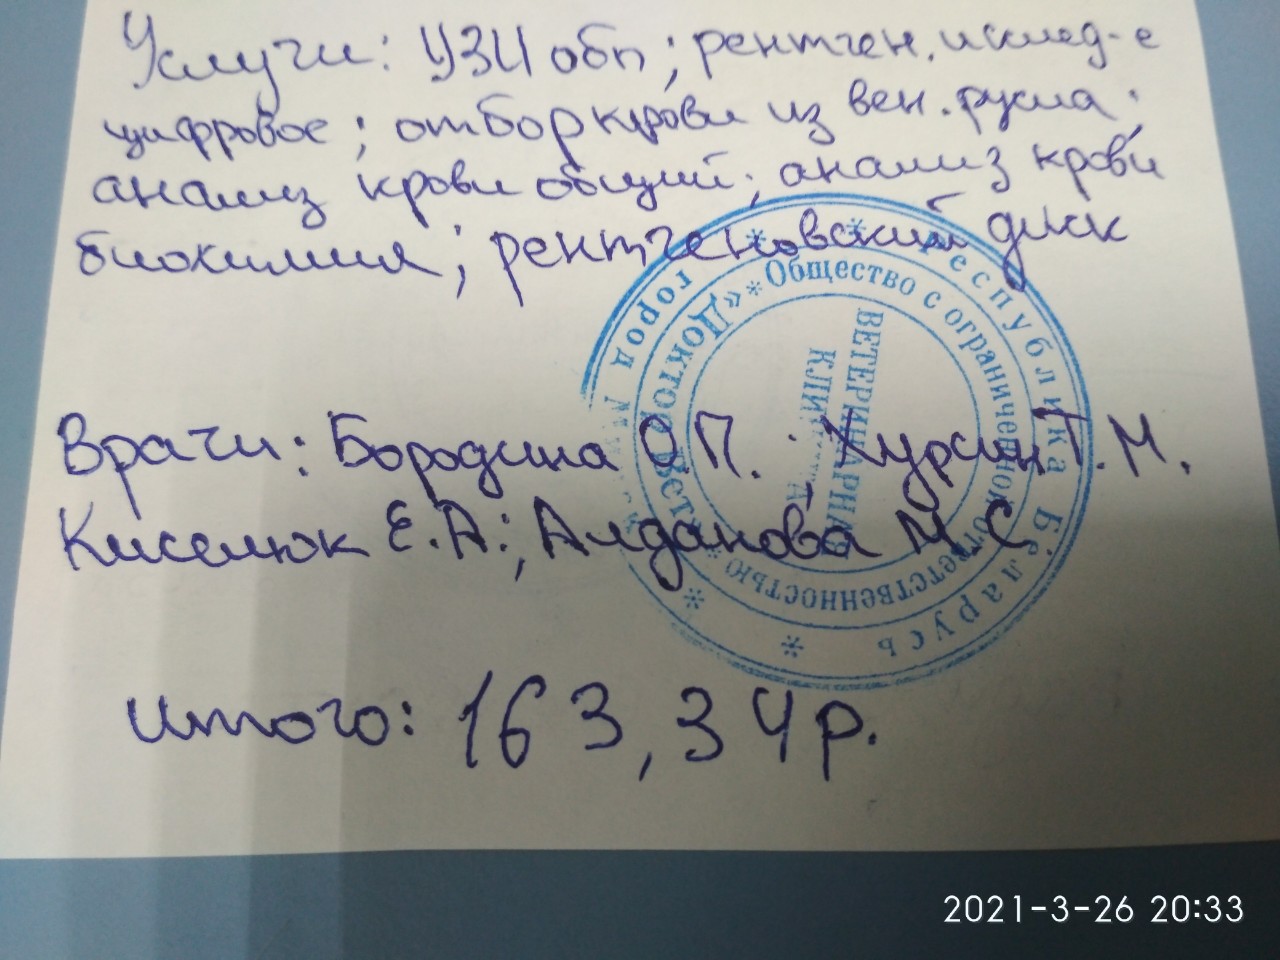 Услуги: УЗИ обп; рентген. исслед-е
цифровое; отбор крови из вен. русла;
анализ крови общий; анализ крови
биохимия; рентгеновский диск
Врачи: Бородина О.П.; Хурсин Г.М.
Киселюк Е.А.; Алданова М.С
Итого: 163,34р.
* Республика Беларусь * город
* Общество с ограниченной ответственностью * «Доктор Вет»
ВЕТЕРИНАРНАЯ
2021-3-26 20:33